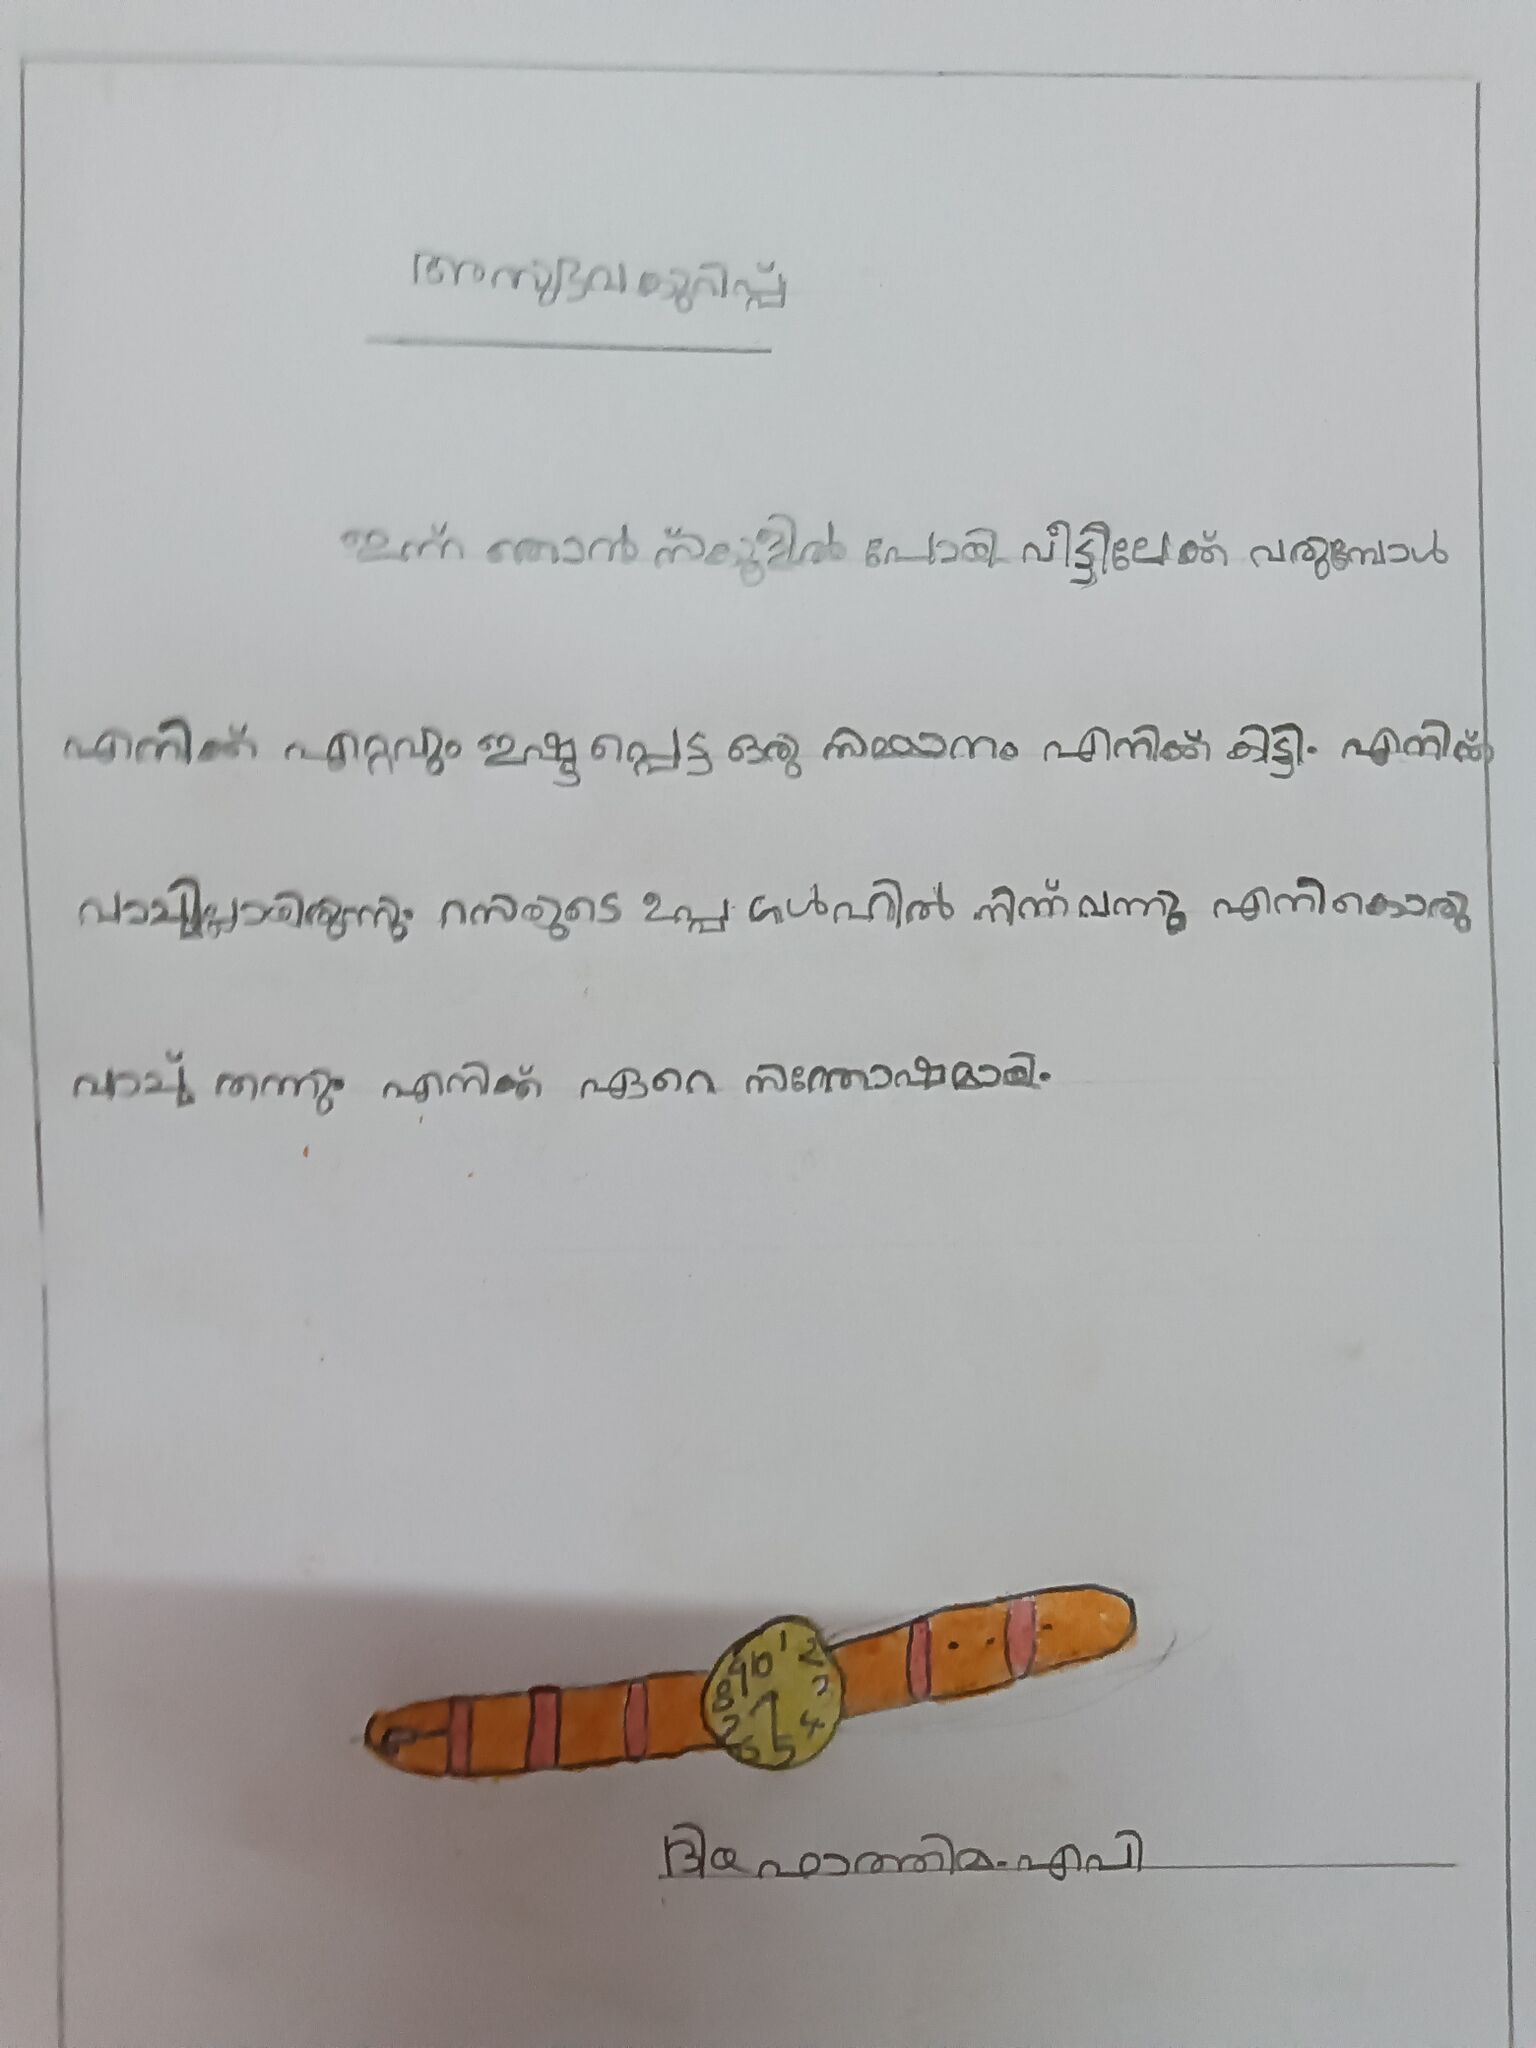 അനുഭവകുറിപ്പ്
ഇന്ന് ഞാൻ സ്കൂളിൽ പോയി വീട്ടിലേക്ക് വരുമ്പോൾ
എനിക്ക് ഏറ്റവും ഇഷ്ടപ്പെട്ട ഒരു സമ്മാനം എനിക്ക് കിട്ടി. എനിക്ക്
വാച്ചില്ലായിരുന്നു റസയുടെ ഉപ്പ ഗൾഫിൽ നിന്ന് വന്നു എനികൊരു
വാച്ച് തന്നു എനിക്ക് ഏറെ സന്തോഷമായി.
1 2 3 4 5 6 7 8 9 10
ദിയ ഫാത്തിമ.എപി